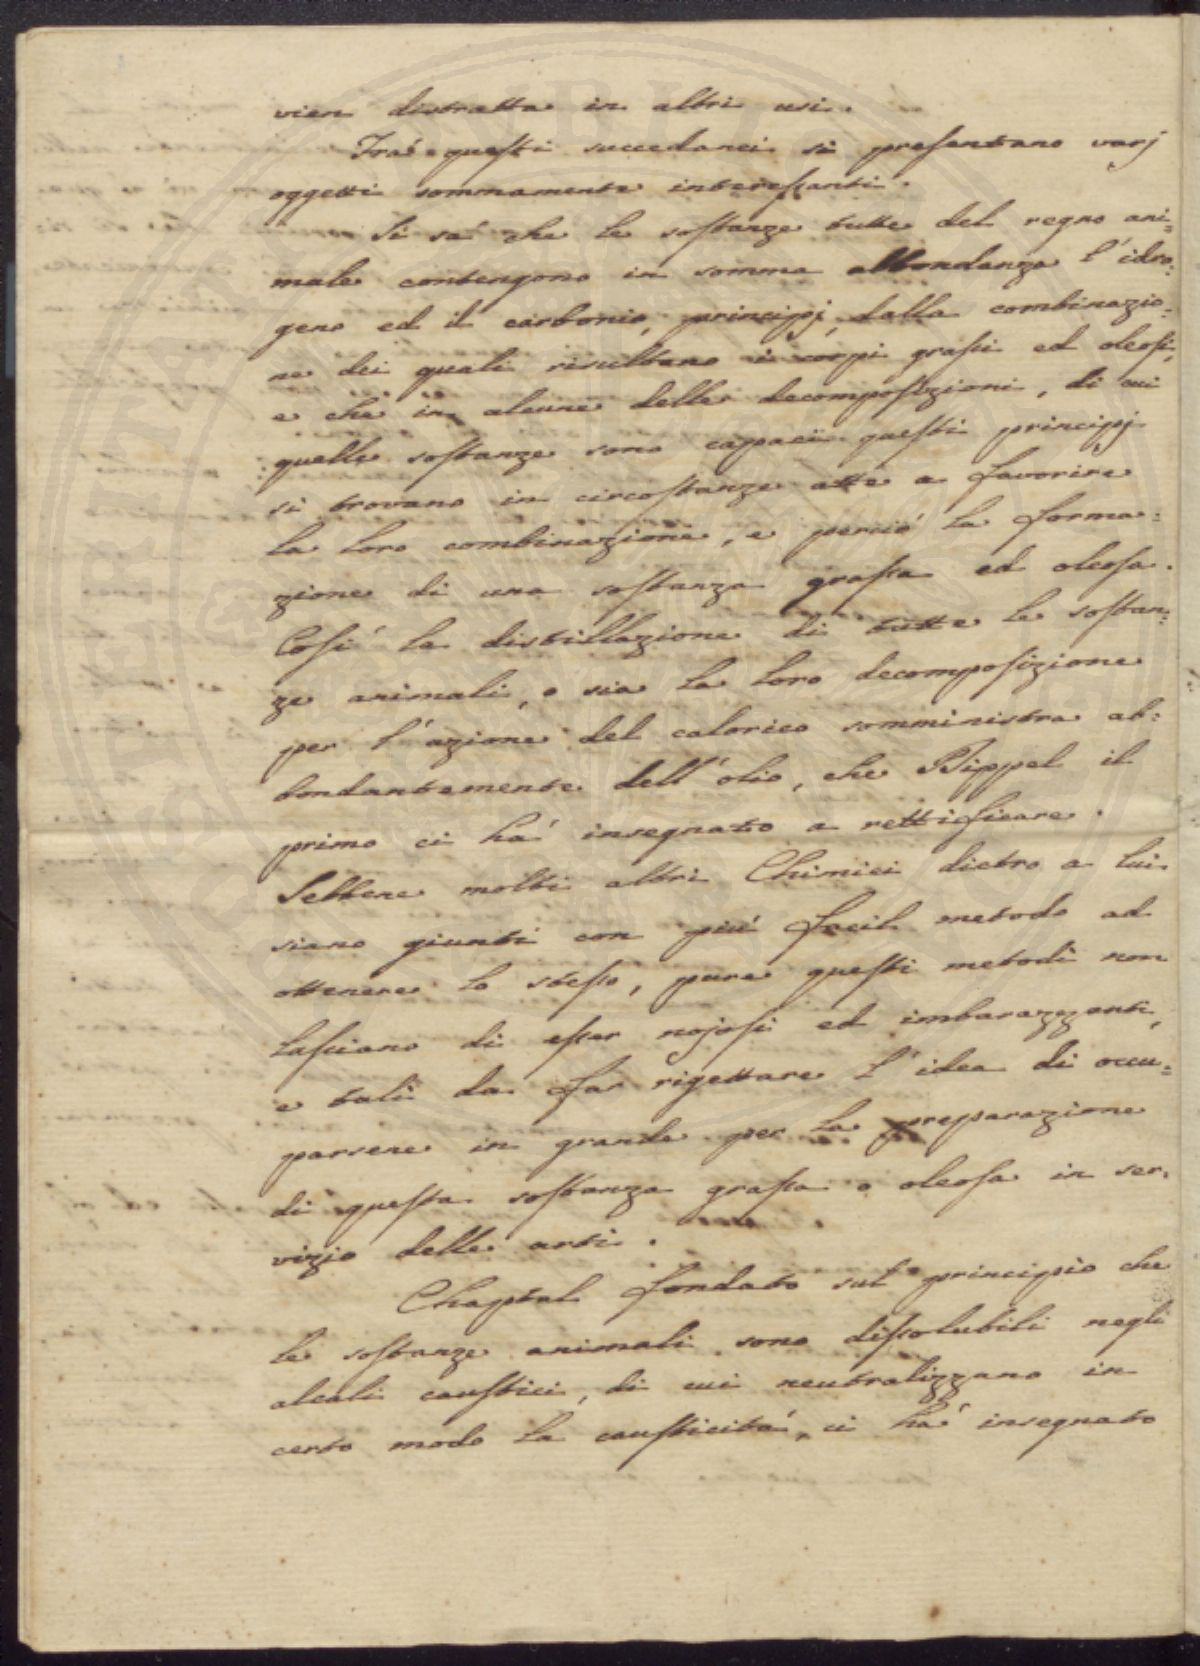 vien distratta in altri usi.
Frà questi succedanei si presentano varj
oggetti sommamente interessanti.
Si sà che le sostanze tutte del regno ani=
male contengono in somma abbondanza l'idro=
geno ed il carbonio, principj, dalla combinazio=
ne dei quali risultano i corpi grassi ed oleosi,
e che in alcune delle decomposizioni, di cui
quelle sostanze sono capaci questi principj
si trovano in circostanze atte a favorire
la loro combinazione, e perciò la forma=
zione di una sostanza grassa ed oleosa.
Così la distillazione di tutte le sostan=
ze animali, o sia la loro decomposizione
per l'azione del calorico somministra ab=
bondantemente dell'olio, che Dippel il
primo ci hà insegnato a rettificare.
Sebbene molti altri Chimici dietro a lui
siano giunti con più facil metodo ad
ottenere lo stesso, pure questi metodi non
lasciano di esser nojosi ed imbarazzanti,
e tali da far rigettare l'idea di occu=
parsene in grande per la preparazione
di questa sostanza grassa o oleosa in ser=
vizio delle arti.
Chaptal fondato sul principio che
le sostanze animali sono dissolubili negli
alcali caustici, di cui neutralizzano in
certo modo la causticità, ci hà insegnato